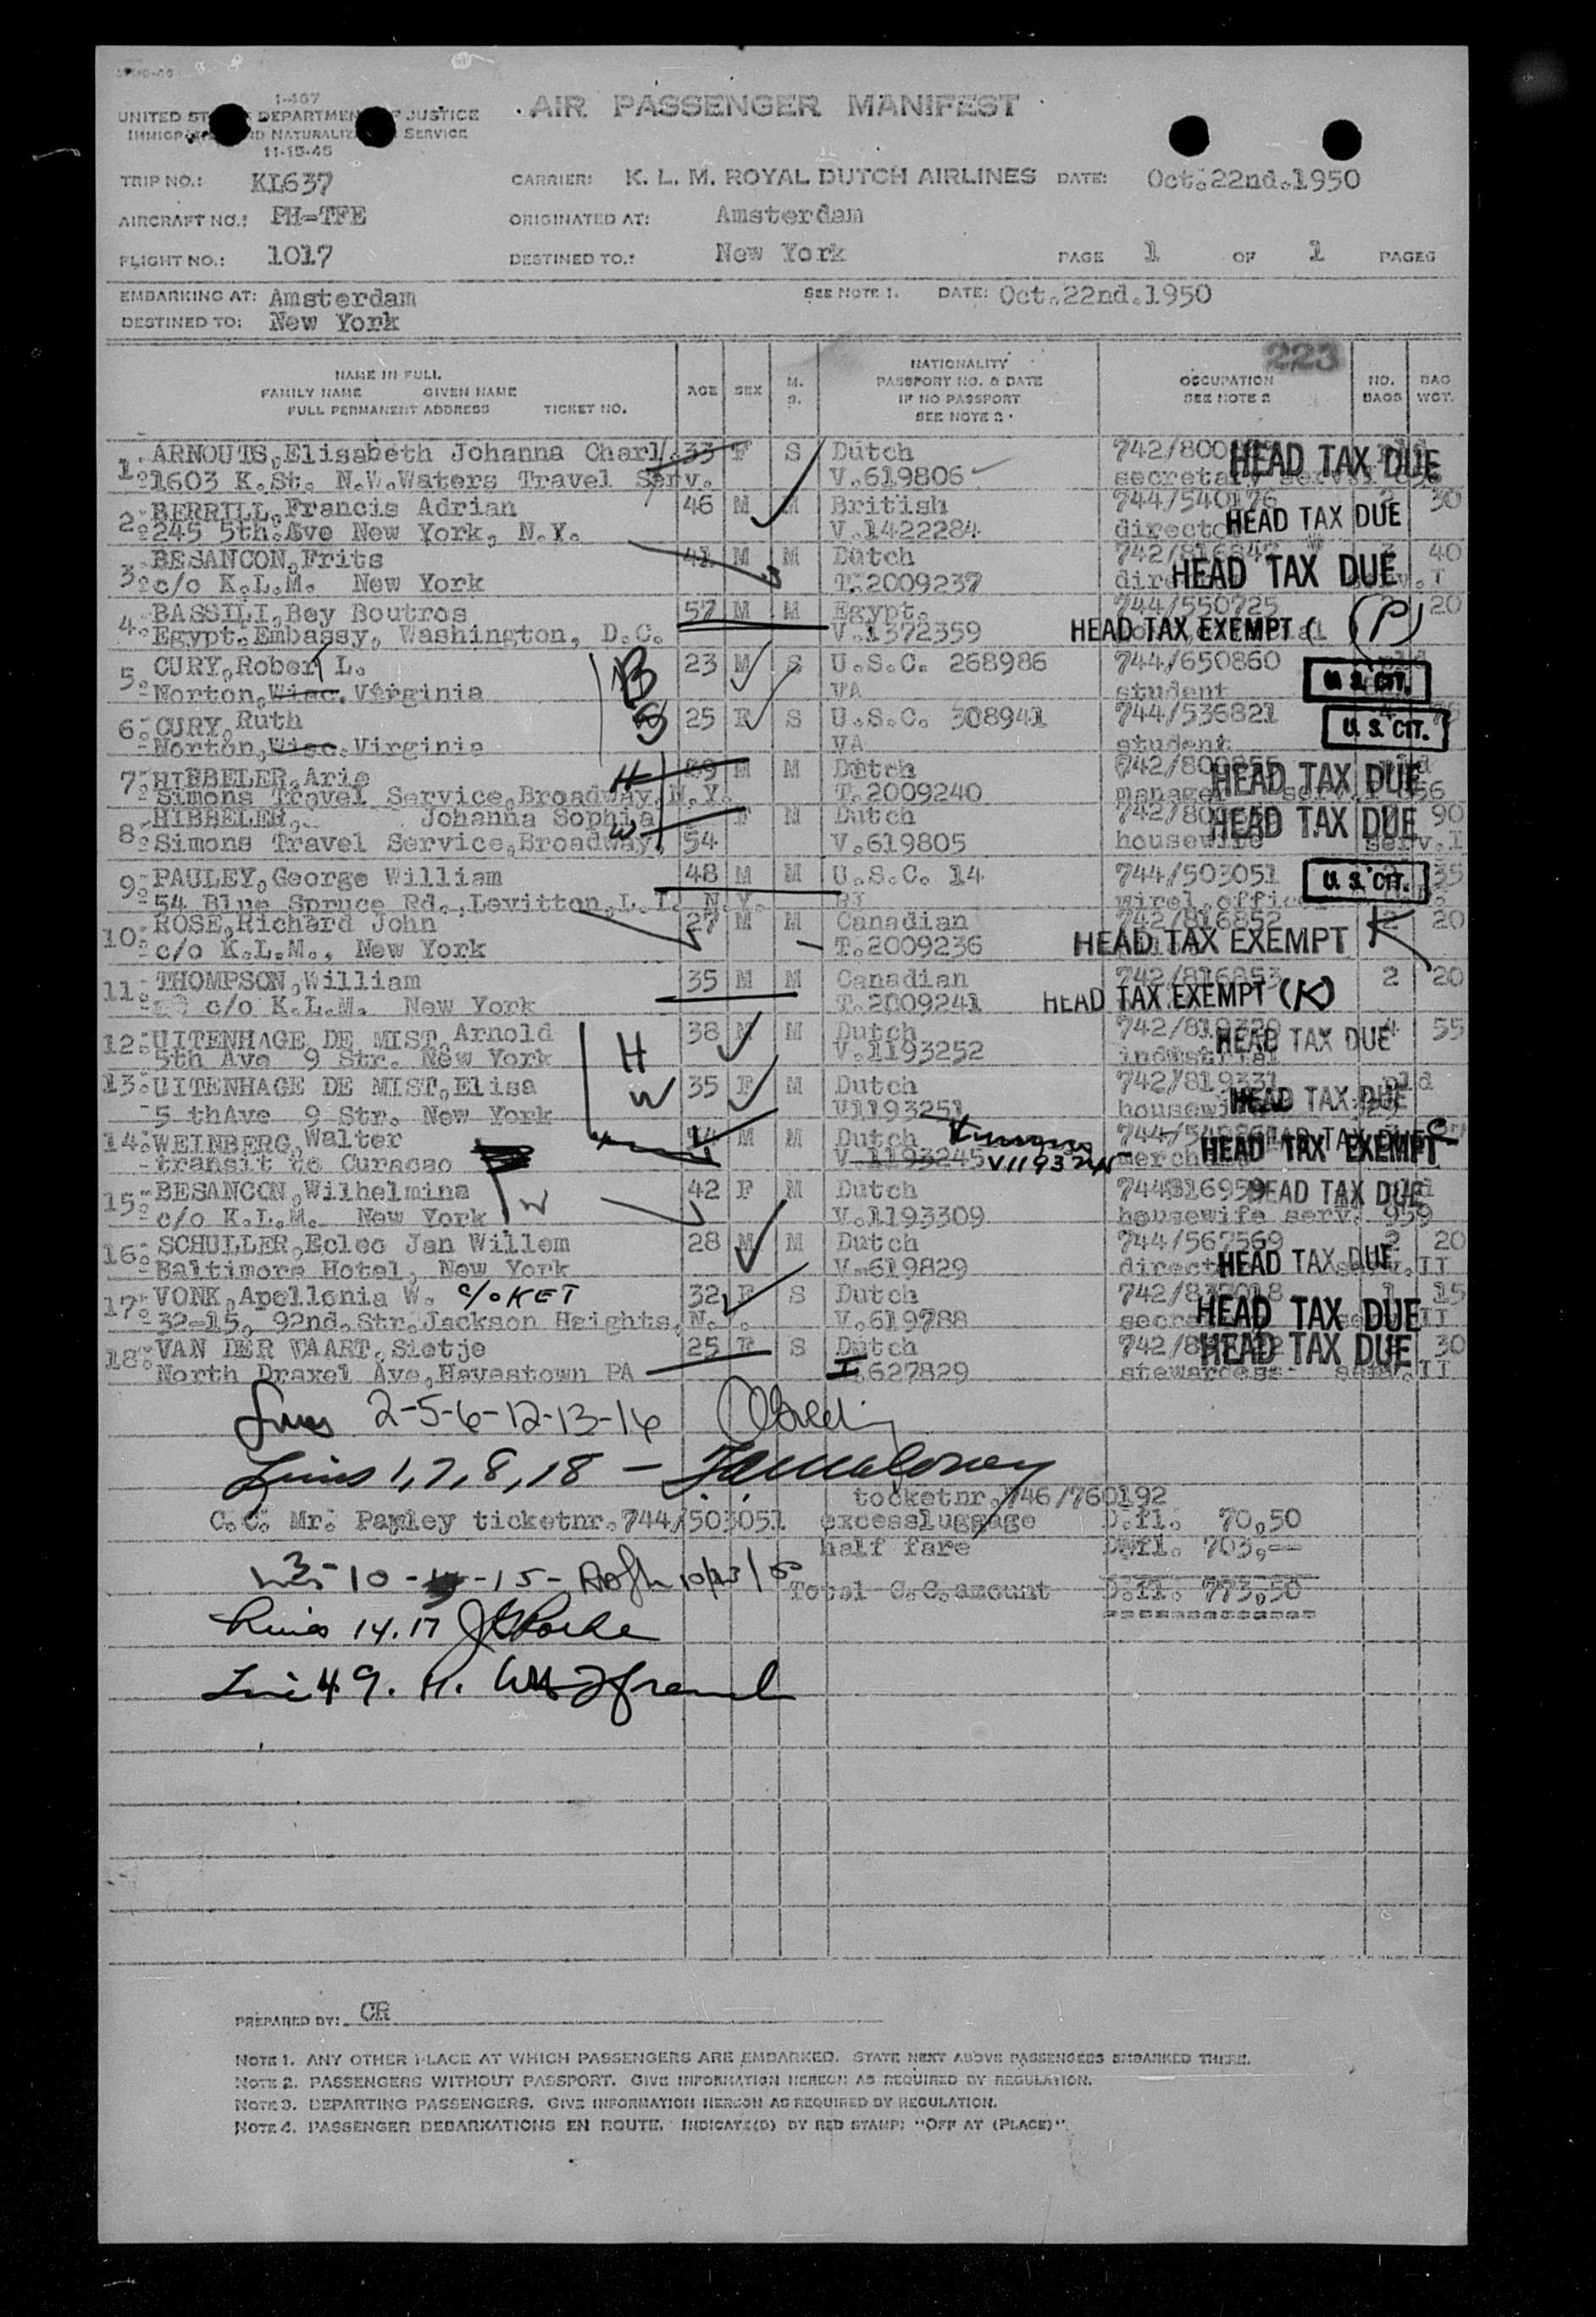 I-467
UNITED ST DEPARTMEN F JUSTICE
IMMIGR ND NATURALIZ SERVICE
11-15-45
AIR PASSENGER MANIFEST
TRIP NO.: KL637 CARRIER: K. L. M. ROYAL DUTCH AIRLINES DATE: Oct.22nd.1950
AIRCRAFT NO.: PH-TFE ORIGINATED AT: Amsterdam
FLIGHT NO.: 1017 DESTINED TO.: New York PAGE 1 OF 1 PAGES
EMBARKING AT: Amsterdam SEE NOTE 1. DATE: Oct.22nd.1950
DESTINED TO: New York
223
NAME IN FULL
FAMILY NAME GIVEN NAME
FULL PERMANENT ADDRESS TICKET NO.
AGE SEX M. S.
NATIONALITY
PASSPORT NO. & DATE
IF NO PASSPORT
SEE NOTE 2.
OCCUPATION
SEE NOTE 2
NO. BAGS
BAG WGT.
1. ARNOUTS, Elisabeth Johanna Charl. 33 F S Dutch HEAD TAX DUE
1603 K.St. N.W.Waters Travel Serv. V.619806 secretary
2. BERRILL, Francis Adrian 46 M M British 744/540176 2 30
245 5th.Ave New York, N.Y. V.1422284 HEAD TAX DUE
3. BESANCON, Frits 41 M M Dutch 742/816847 40
c/o K.L.M. New York T.2009237 HEAD TAX DUE
4. BASSILI, Bey Boutros 57 M M Egypt. 744/550725 20
Egypt.Embassy, Washington, D.C. V.1372359 HEAD TAX EXEMPT (P)
5. CURY, Robert L. B 23 M S U.S.C. 268986 744/650860 pld
Norton, Wisc. Virginia VA student U. S. CIT.
6. CURY, Ruth S 25 F S U.S.C. 308941 744/536821
Norton, Wisc. Virginia VA student U. S. CIT.
7. HIBBELER, Arie H M M Dutch HEAD TAX DUE
Simons Travel Service,Broadway,N.Y. T.2009240 manager
8. HIBBELER, Johanna Sophia W F M Dutch HEAD TAX DUE 90
Simons Travel Service,Broadway, 54 V.619805 housewife serv.I
9. PAULEY, George William 48 M M U.S.C. 14 744/503051 U. S. CIT. 35
54 Blue Spruce Rd.,Levitton,L.I. N.Y. RI
10. ROSE, Richard John 27 M M Canadian 742/816852 2 20
c/o K.L.M., New York T.2009236 HEAD TAX EXEMPT K
11. THOMPSON, William 35 M M Canadian 742/816853 2 20
c/o K.L.M. New York T.2009241 HEAD TAX EXEMPT (K)
12. UITENHAGE DE MIST, Arnold H 38 M M Dutch 4 55
5th Ave 9 Str. New York V.1193252 industrial HEAD TAX DUE
13. UITENHAGE DE MIST, Elisa W 35 F M Dutch 742/819331 pld
5 thAve 9 Str. New York V1193251 housewife HEAD TAX DUE
14. WEINBERG, Walter M M Dutch
transit to Curacao V.1193245 HEAD TAX EXEMPT
15. BESANCON, Wilhelmina W 42 F M Dutch HEAD TAX DUE
c/o K.L.M. New York V.1193309 housewife serv. 959
16. SCHULLER, Ecleo Jan Willem 28 M M Dutch 744/567569 2 20
Baltimore Hotel, New York V.619829 HEAD TAX DUE
17. VONK, Apollonia W. 32 F S Dutch 1 15
32-15, 92nd.Str.Jackson Heights, N. . V.619788 HEAD TAX DUE
18. VAN DER VAART, Sietje 25 F S Dutch HEAD TAX DUE 30
North Draxel Ave,Havestown PA I.627829 stewardess
Lines 2-5-6-12-13-16
Lines 1,7,8,18 -
tocketnr.746/760192
C.C. Mr. Pauley ticketnr.744/503051 excessluggage D.fl. 70,50
half fare D.fl. 703,--
3-10- -15- 10/23/50
Total C.C.amount D.fl. 773,50
Lines 14.17
Line 4 9.
PREPARED BY: CR
NOTE 1. ANY OTHER PLACE AT WHICH PASSENGERS ARE EMBARKED. STATE NEXT ABOVE PASSENGERS EMBARKED THERE.
NOTE 2. PASSENGERS WITHOUT PASSPORT. GIVE INFORMATION HEREON AS REQUIRED BY REGULATION.
NOTE 3. DEPARTING PASSENGERS. GIVE INFORMATION HEREON AS REQUIRED BY REGULATION.
NOTE 4. PASSENGER DEBARKATIONS EN ROUTE. INDICATE(D) BY RED STAMP: "OFF AT (PLACE)".